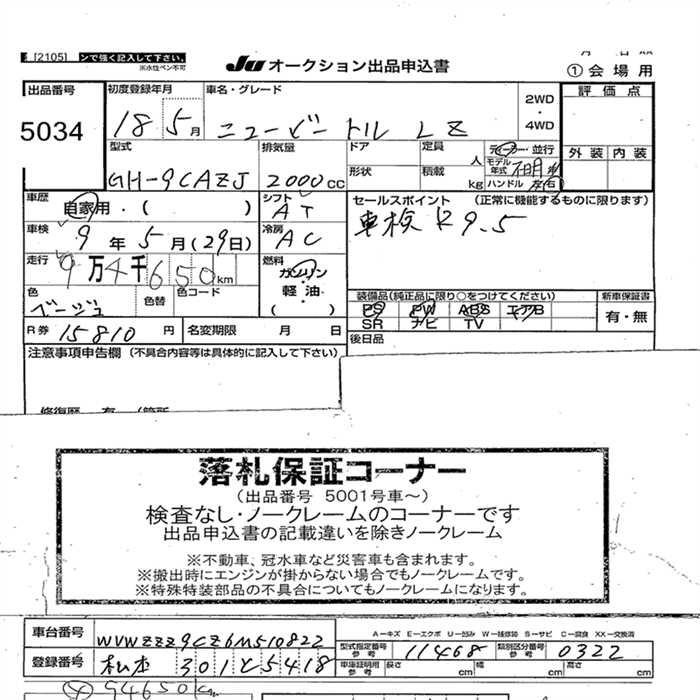 [2105] ンで強く記入して下さい。
※水性ペン不可
Ju オークション出品申込書
①会場用
出品番号 初度登録年月 車名・グレード 2WD・4WD 評価点
5034 18 5月 ニュービートル LZ
型式 排気量 ドア 定員 人 ディーラー・並行 外装 内装
GH-9CAZJ 2000cc 形状 積載 kg モデル年式 不明 年
ハンドル 左右
車歴 自家用・( ) シフト AT セールスポイント (正常に機能するものに限ります)
車検 9年5月(29日) 冷房 AC 車検R9.5
走行 9万4千650km 燃料 ガソリン
軽・油
( )
色 ベージュ 色替 色コード
装備品(純正品に限り○をつけてください) 新車保証書
PS PW ABS エアB 有・無
SR ナビ TV
R券 15810円 名変期限 月 日 後日品
注意事項申告欄(不具合内容等は具体的に記入して下さい)
落札保証コーナー
(出品番号 5001号車~)
検査なし・ノークレームのコーナーです
出品申込書の記載違いを除きノークレーム
※不動車、冠水車など災害車も含まれます。
※搬出時にエンジンが掛からない場合でもノークレームです。
※特殊特装部品の不具合についてもノークレームになります。
車台番号 WVWZZZ9CZ6M510822 A-キズ E-エクボ U-凹み W-補修跡 S-サビ C-腐食 XX-交換済
型式指定番号 参考 11468 類別区分番号 参考 0322
登録番号 松本 301 と 5418 車庫証明用 参考 長さ cm 幅 cm 高さ cm
94650km